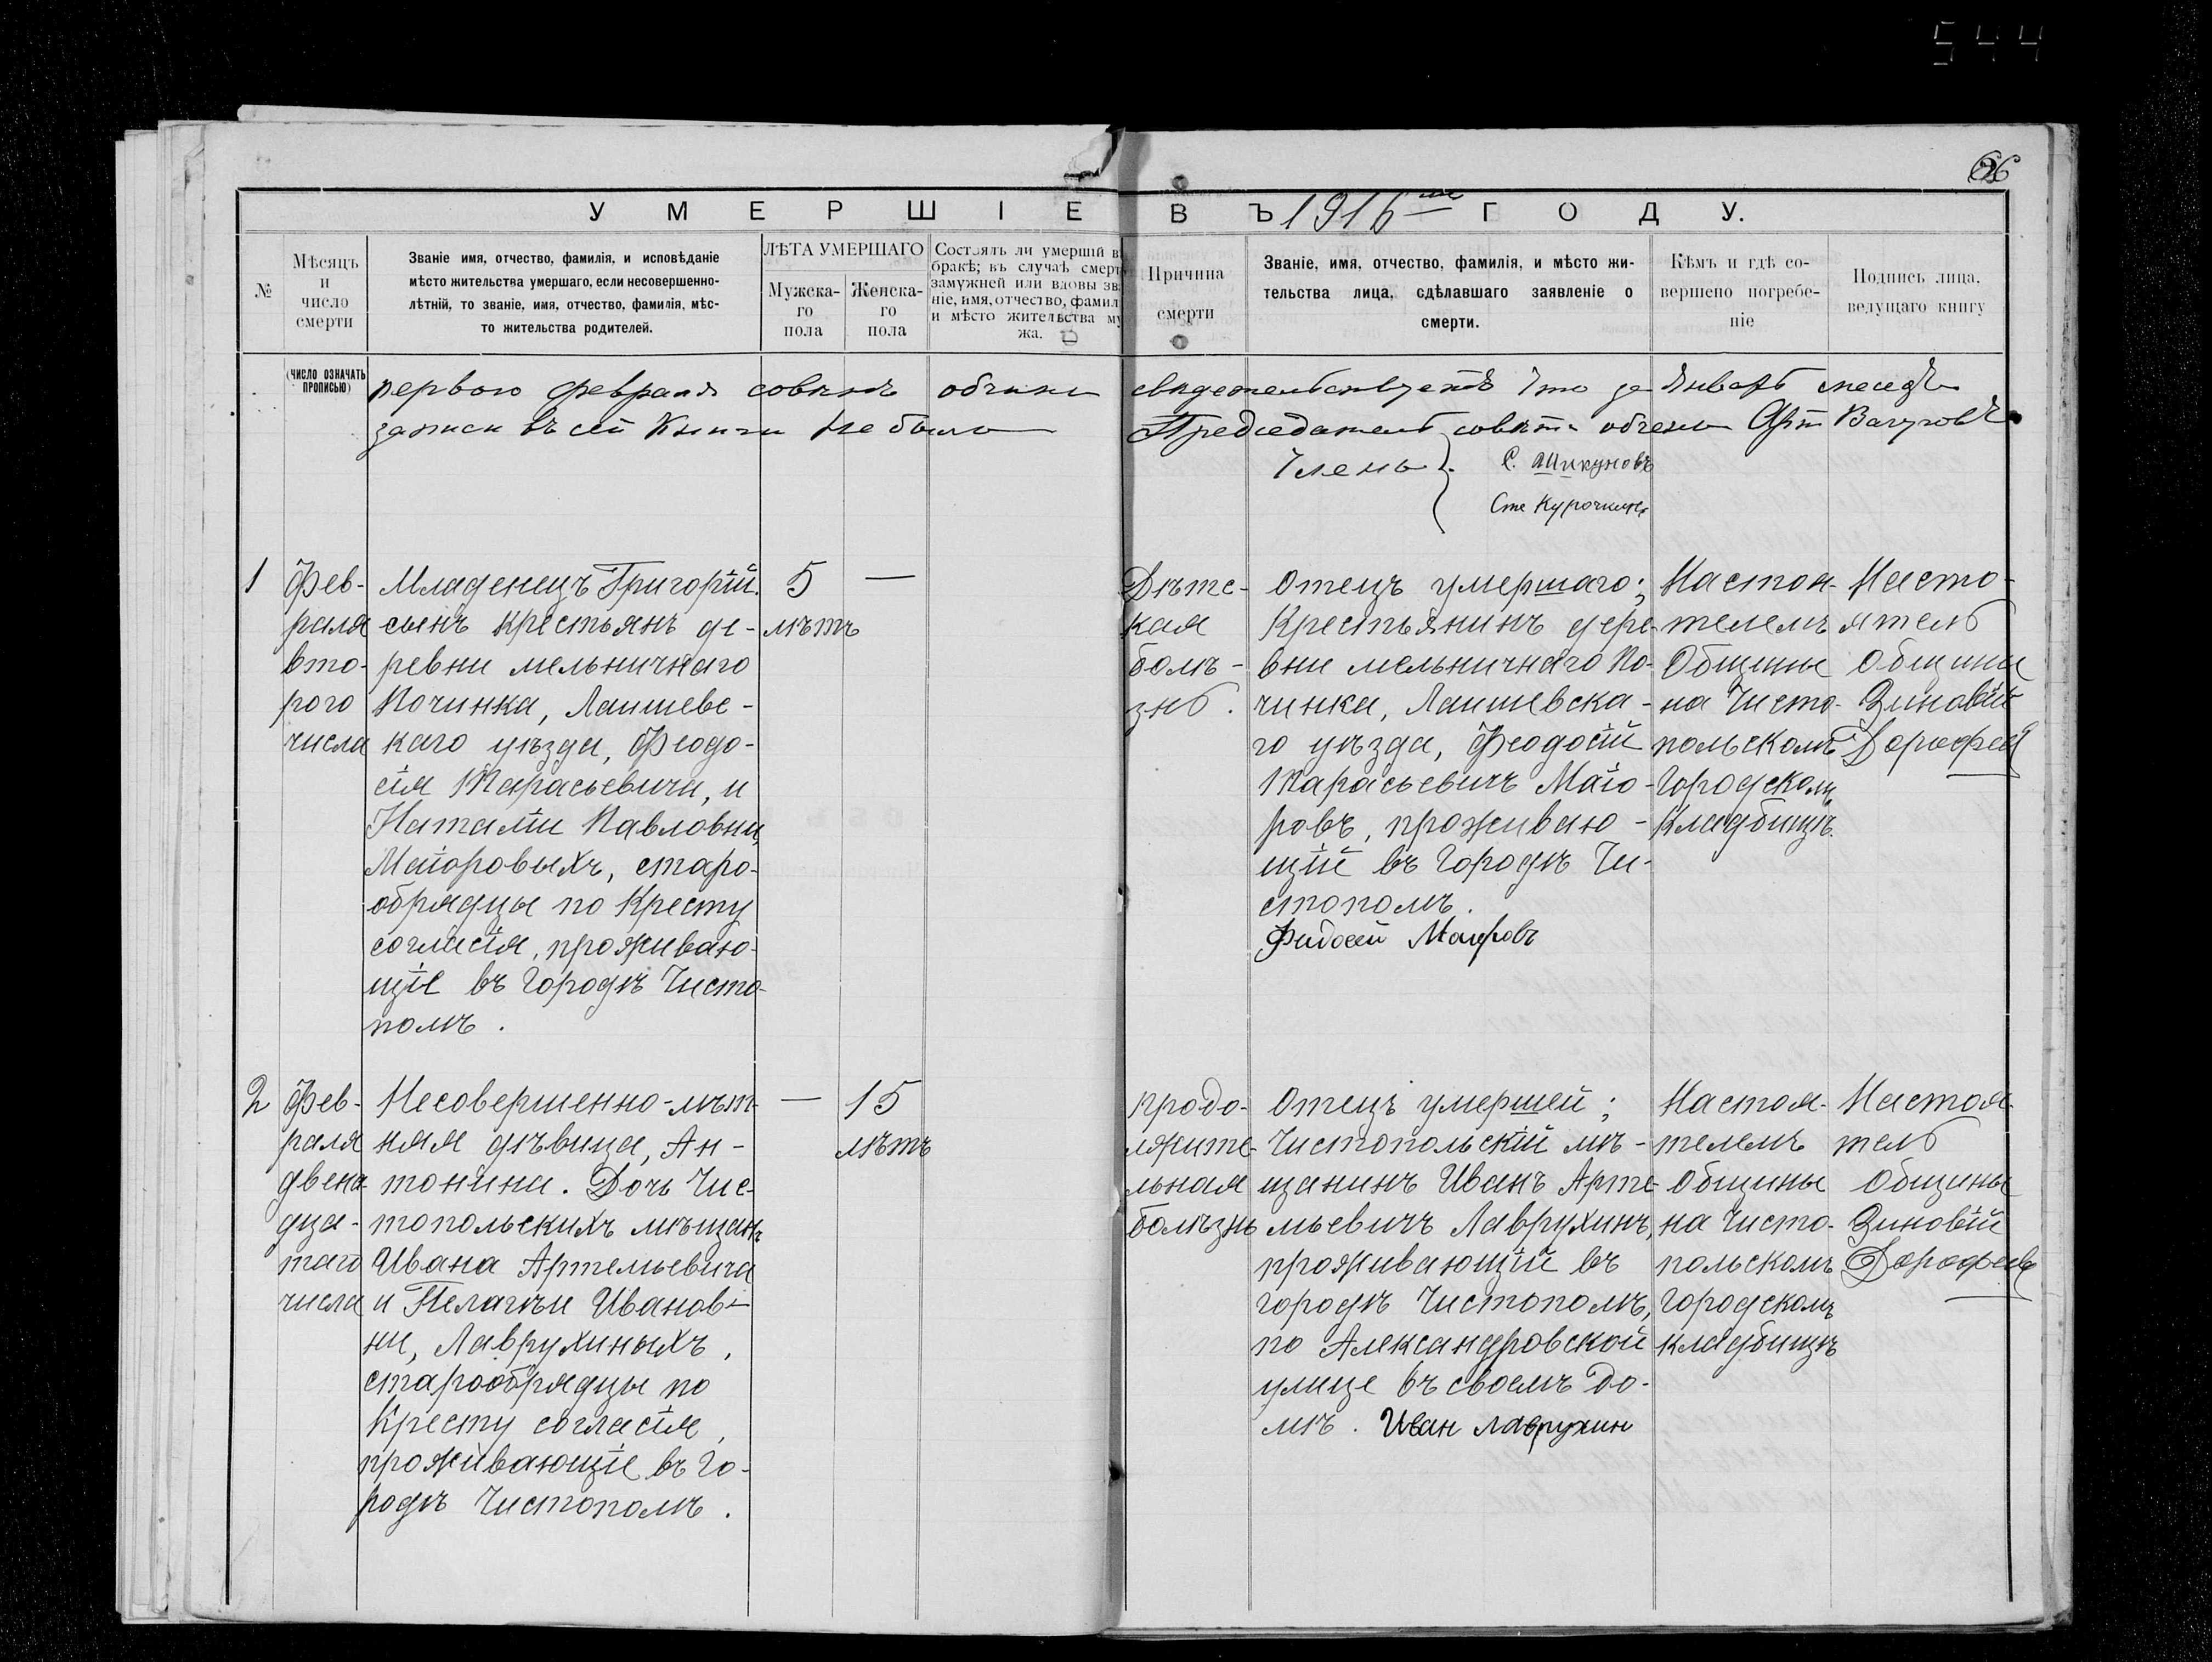 544
66
УМЕРШІЕ ВЪ 1916 ГОДУ.
№
Мѣсяцъ
и
число
смерти
Званіе имя, отчество, фамилія, и исповѣданіе
мѣсто жительства умершаго, если несовершенно-
лѣтній, то званіе, имя, отчество, фамилія, мѣс-
то жительства родителей.
ЛѢТА УМЕРШАГО
Мужска-
го
пола
Женска-
го
пола
Состоялъ ли умершій в
бракѣ; въ случаѣ смерт
замужней или вдовы зв
ніе, имя, отчество, фамил
и мѣсто жительства му
жа.
Причина
смерти
Званіе, имя, отчество, фамилія, и мѣсто жи-
тельства лица, сдѣлавшаго заявленіе о
смерти.
Кѣмъ и гдѣ со-
вершено погребе-
ніе
Подпись лица,
ведущаго книгу
(ЧИСЛО ОЗНАЧАТЬ
ПРОПИСЬЮ)
первого февраля совѣтъ свидетельствуетъ Что за Январь
записи въ сей Книги не было Председатель совѣта Вагуровъ
Члены С. Шикуновъ
Сте Курочкинъ
1
Фев-
раля
вто-
рого
числа
Младенецъ Григорій.
сынъ крестьянъ де-
ревни мельничнаго
Починка, Лаишевс-
каго уѣзда, Феодо-
сія Тарасьевича, и
Наталіи Павловны,
Маіоровыхъ, старо-
обрядцы по Кресту
согласія, проживаю-
щіе въ Городѣ Чисто-
полѣ.
5
лѣтъ
—
Дѣтс-
кая
болѣ-
знь.
Отецъ умершаго;
Крестьянинъ дере-
вни мельничнаго По-
чинка, Лаишевска-
го уѣзда, Феодосій
Тарасьевичъ Маіо-
ровъ, проживаю-
щій въ Городѣ Чи-
стополѣ.
Фидосей Маиоровъ
Настоя-
телемъ
Общины
на Чисто-
польскомъ
Городскомъ
Кладбищѣ.
Насто-
ятель
Общины
Зиновій
Дорофеевъ
2
Фев-
раля
двена-
дца-
таго
числа
Несовершенно-лѣт-
няя дѣвица, Ан-
тонина. Дочь Чис-
топольскихъ мѣщанъ
Ивана Артемьевича
и Пелагѣи Иванов-
ны, Лаврухиныхъ,
старообрядцы по
Кресту согласія,
проживающіе въ Го-
родѣ Чистополѣ.
—
15
лѣтъ
продо-
лжите-
льная
болѣзнь
Отецъ умершей;
Чистопольскій мѣ-
щанинъ Иванъ Арте-
мьевичъ Лаврухинъ,
проживающій въ
городѣ Чистополѣ,
по Александровской
улице въ своемъ до-
мѣ. Иван Лаврухин
Настоя-
телемъ
Общины
на Чисто-
польскомъ
Городскомъ
кладбищѣ
Настоя-
тель
Общины
Зиновій
Дорофеевъ